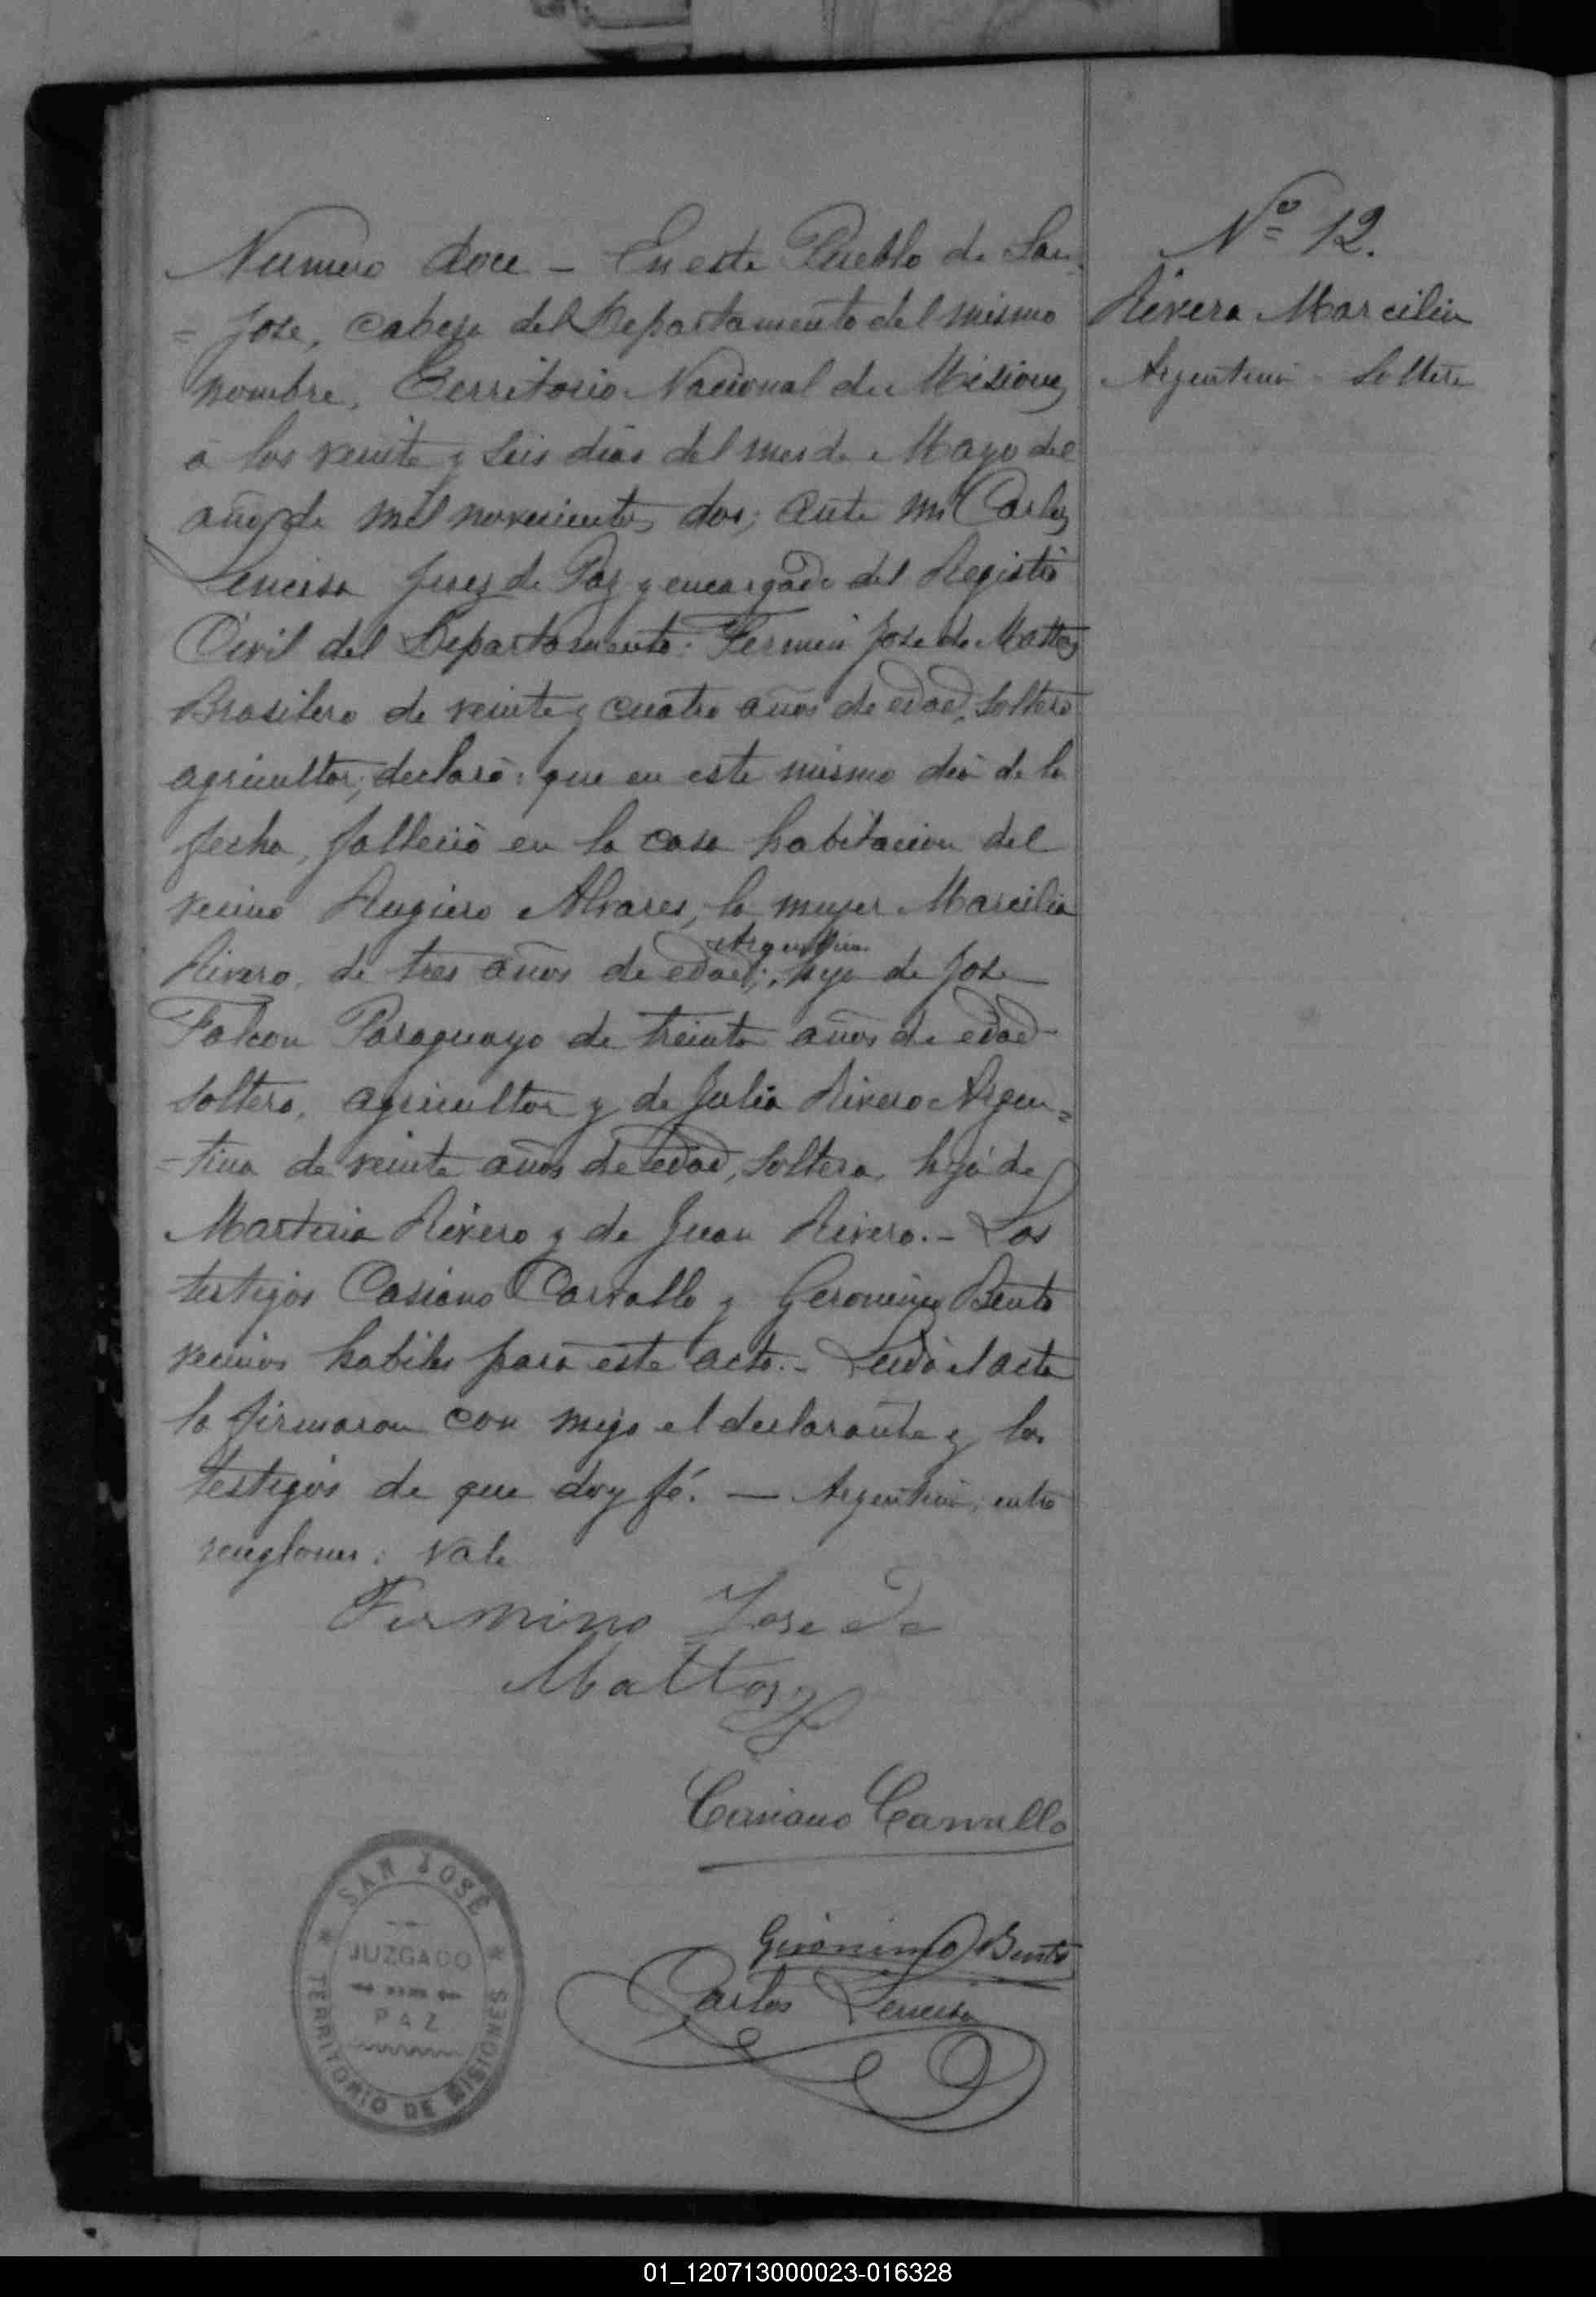 Numero doce - En este Pueblo de San
= Jose, cabesa del Departamento del mismo
nombre, Territorio Nacional de Misiones
á los veinte y seis dias del mes de Mayo del
año de mil novecientos dos; ante mi Carlos
Lencisa Juez de Paz y encargado del Registro
Civil del Departamento: Fermin Jose de Mattos
Brasilero de veinte y cuatro años de edad, soltero
agricultor, declaró: que en este mismo dia de la
fecha, falleció en la casa habitacion del
vecino Rugiero Alvares, la mujer Marcilia
Argentina
Rivero, de tres años de edad; hija de Jose
Falcon Paraguayo de treinta años de edad
soltero, agricultor y de Julia Rivero Argen=
=tina de veinte años de edad, soltera, hija de
Marteria Rivero y de Juan Rivero.- Los
testigos Casiano Carvallo y Geronimo Bento
vecinos habiles para este acto.- Leida el acta
la firmaron con migo el declarante y los
testigos de que doy fé. — Argentina, entre
renglones: vale
Fermino Jose de
Mattos
Casiano Carvallo
Gerónimo Bento
Carlos Lencisa
Nº 12.
Rivera Marcilia
Argentina - Soltera
SAN JOSÉ
JUZGADO
PAZ
TERRITORIO DE MISIONES
01_120713000023-016328